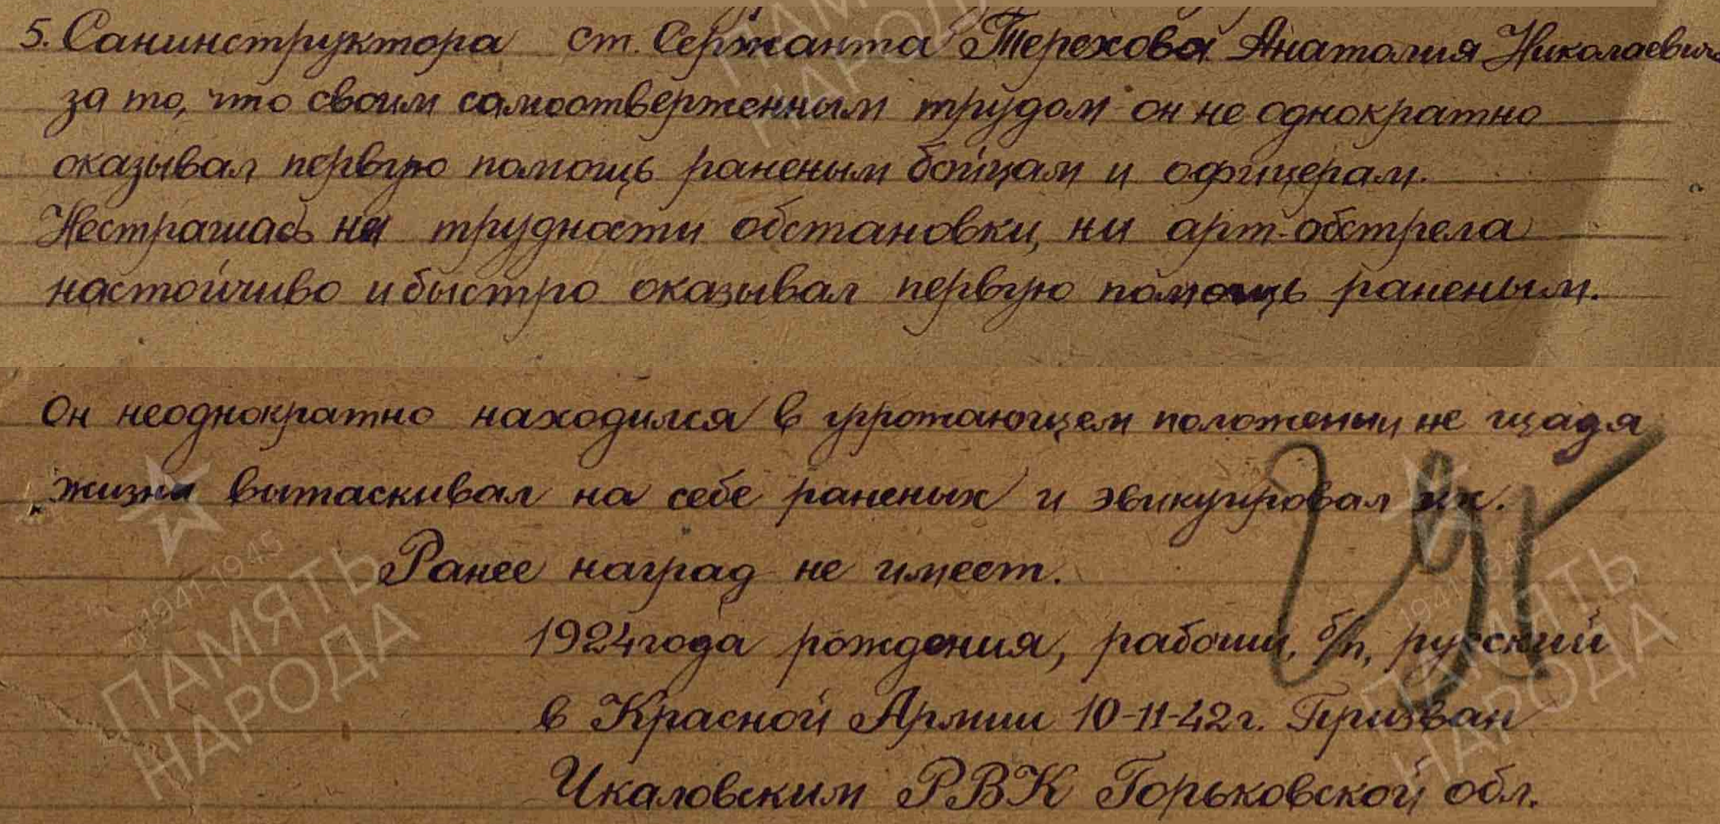 5. Санинструктора ст. Сержанта Терехова Анатолия Николаевича
за то, что своим самоотверженным трудом он не однократно
оказывал первую помощь раненым бойцам и офицерам.
Нестрашась на трудности обстановки, ни арт-обстрела
настойчиво и быстро оказывал первую помощь раненым.
Он неоднократно находился в угрожающем положеныи не щадя
жизни вытаскивал на себе раненых и эвикуировал их.
Ранее наград не имеет.
1924 года рождения, рабочий, б/п, русский
в Красной Армии 10-11-42 г. Призван
Чкаловским РВК Горьковской обл.
ПАМЯТЬ
НАРОДА
1941-1945
ПАМЯТЬ
НАРОДА
1941-1945
ПАМЯТЬ
НАРОДА